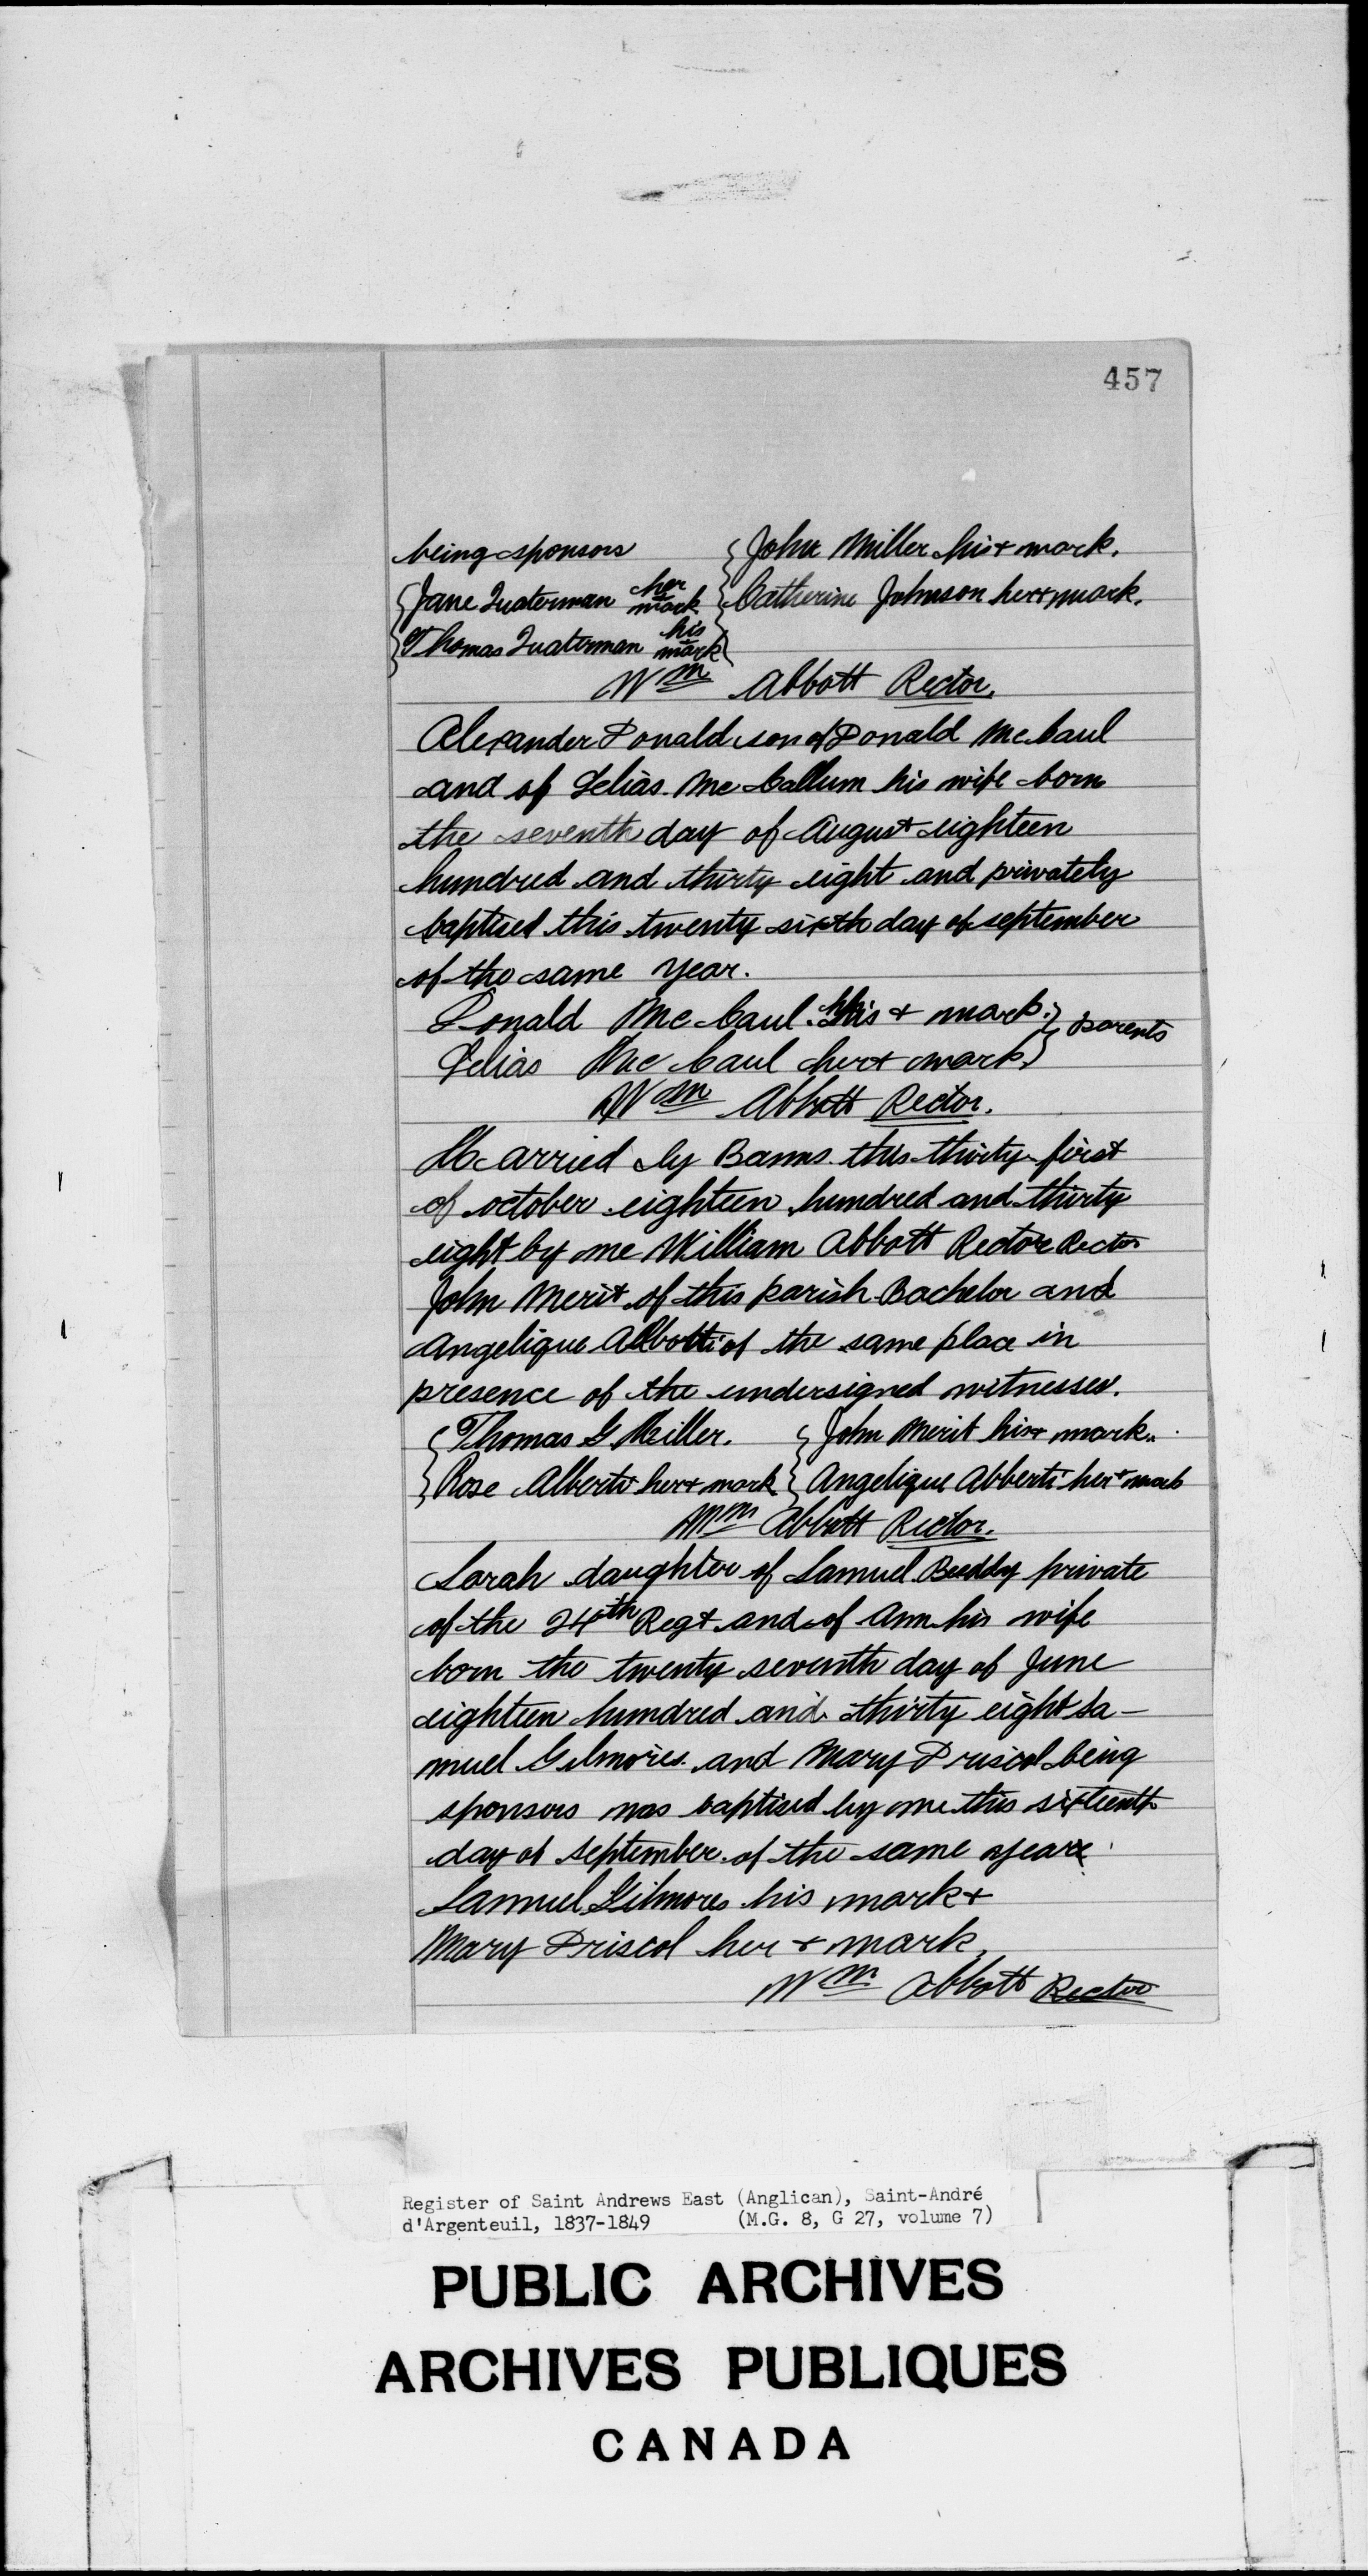 457
being sponsors { John Miller his + mark.
{ Jane Quaterman her + mark { Catherine Johnson her + mark.
{ Thomas Quaterman his + mark {
Wm Abbott Rector.
Alexander Donald son of Donald McCaul
and of Lelias McCallum his wife born
the seventh day of August eighteen
hundred and thirty eight and privately
baptised this twenty sixth day of september
of the same year.
Donald McCaul his + mark. } parents
Lelias McCaul her + mark. }
Wm Abbott Rector.
Married by Banns this thirty-first
of october eighteen hundred and thirty
eight by me William Abbott Rector Rector
John Merit of this parish Bachelor and
Angelique of the same place in
presence of the undersigned witnesses.
{ Thomas G Miller. { John Merit his + mark.
{ Rose Alberti her + mark { Angelique Abberti her + mark
Wm Abbott Rector.
Sarah daughter of Samuel Beddy private
of the 24th Regt and of Ann his wife
born the twenty seventh day of June
eighteen hundred and thirty eight Sa-
muel Gilmores and Mary Driscol being
sponsors was baptised by me this sixteenth
day of september of the same year
Samuel Gilmores his mark +
Mary Driscol her + mark.
Wm Abbott Rector
Register of Saint Andrews East (Anglican), Saint-André
d'Argenteuil, 1837-1849 (M.G. 8, G 27, volume 7)
PUBLIC ARCHIVES
ARCHIVES PUBLIQUES
CANADA